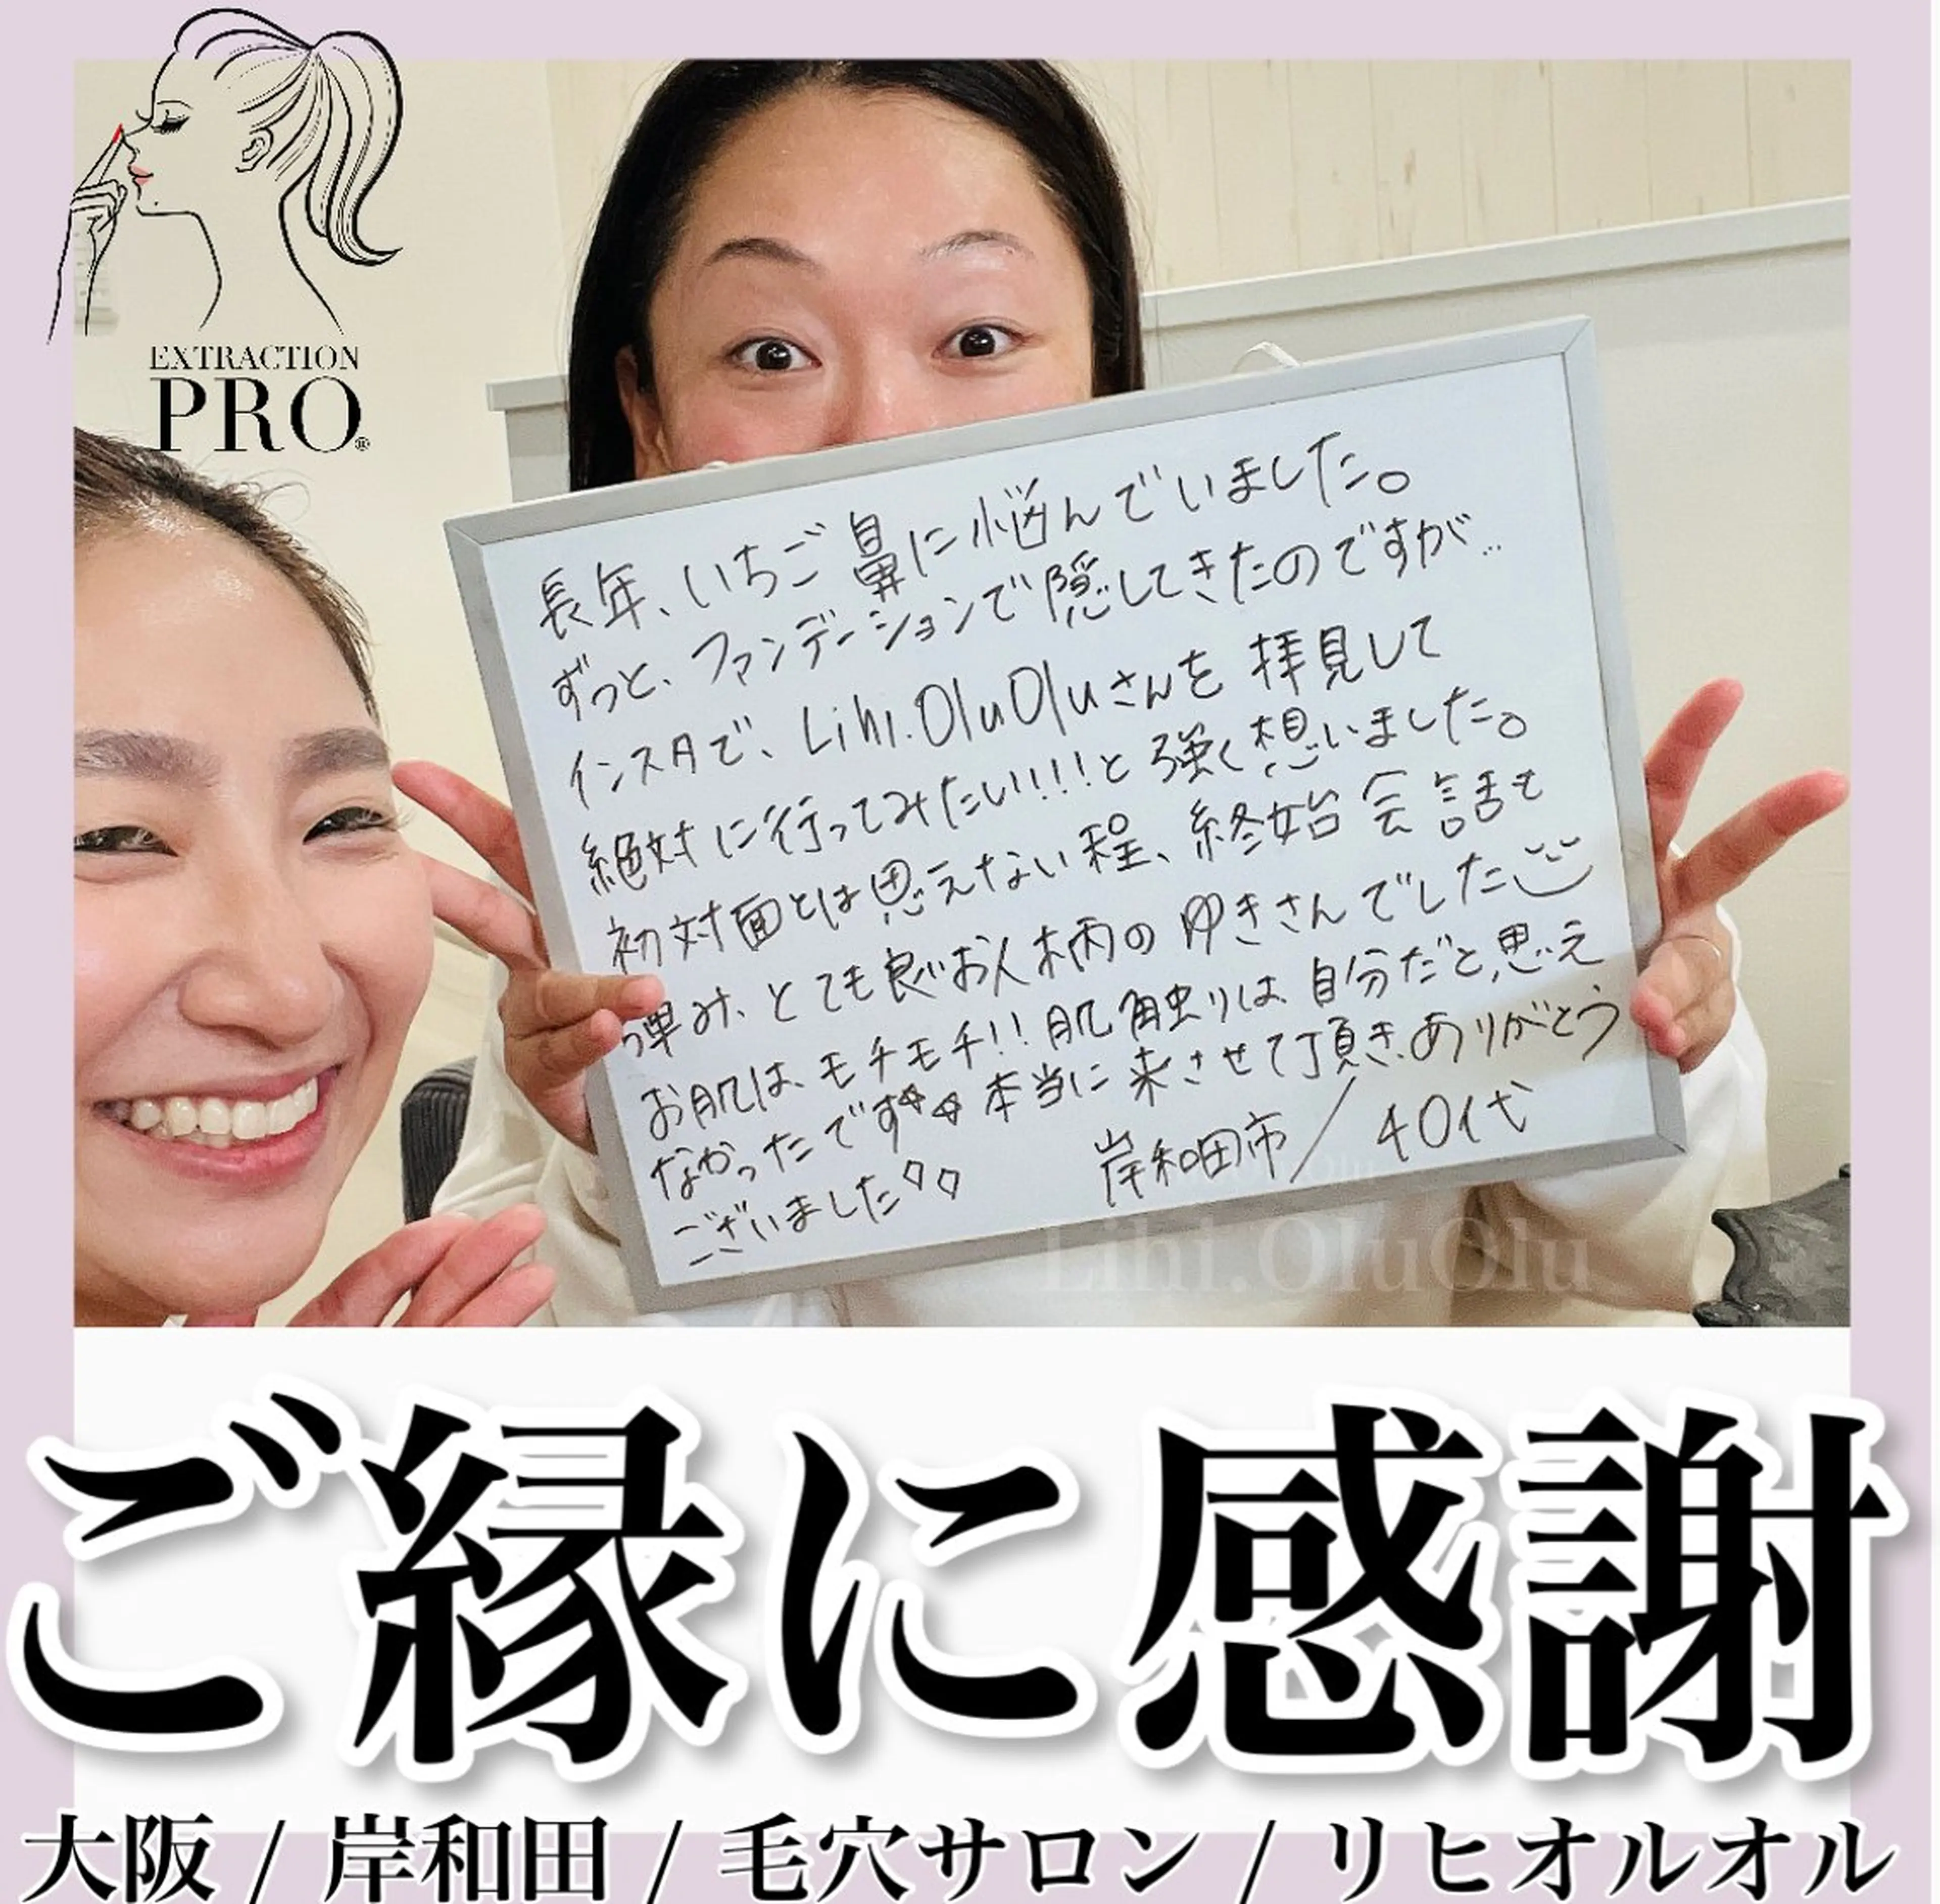 EXTRACTION
PRO®
長年、いちご鼻に悩んでいました。
ずっと、ファンデーションで隠してきたのですが…
インスタで、Lihi.OluOluさんを拝見して
絶対に行ってみたい!!!と強く想いました。
初対面とは思えない程、終始会話も
弾み、とても良いお人柄のゆきさんでした
お肌は、モチモチ!!肌触りは、自分だと思え
なかったです 本当に来させて頂き、ありがとう
ございました
岸和田市/40代
Lihi.OluOlu
ご縁に感謝
大阪 / 岸和田 / 毛穴サロン / リヒオルオル